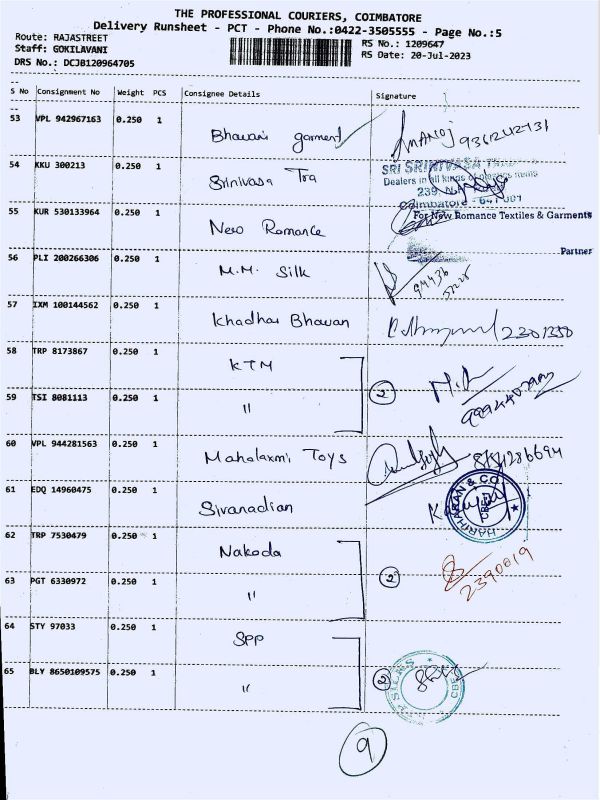 THE PROFESSIONAL COURIERS, COIMBATORE
Delivery Runsheet - PCT - Phone No.:0422-3505555 - Page No.:5
Route: RAJASTREET
RS No.: 1209647
Staff: GOKILAVANI
RS Date: 20-Jul-2023
DRS No.: DCJB120964705
S No Consignment No Weight PCS Consignee Details Signature
53 VPL 942967163 0.250 1 Bhavani garment MANOJ
54 KKU 300213 0.250 1 Srinivasa Tra
SRI SRINIVASA
Dealers in all kinds of items
239,
Coimbatore - 641 001
55 KUR 530133964 0.250 1 New Romance
For New Romance Textiles & Garments
Partner
56 PLI 200266306 0.250 1 M.M. Silk
57 IXM 100144562 0.250 1 Khadhar Bhavan 2301350
58 TRP 8173867 0.250 1 KTM
2
59 TSI 8081113 0.250 1 "
60 VPL 944281563 0.250 1 Mahalaxmi Toys
61 EDQ 14960475 0.250 1 Sivanadian
HARIHARAN & CO
62 TRP 7530479 0.250 1 Nakoda
2 2390019
63 PGT 6330972 0.250 1 "
64 STY 97033 0.250 1 SPP
65 BLY 8650109575 0.250 1 "
2
9